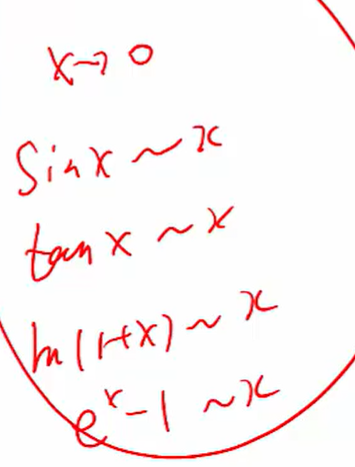 x→0
sin x ~ x
tan x ~ x
ln(1+x) ~ x
eˣ-1 ~ x